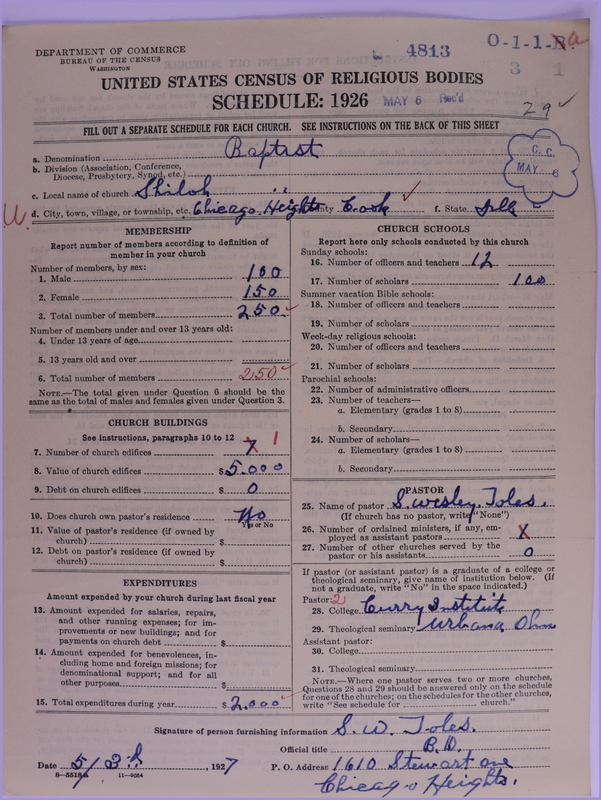 DEPARTMENT OF COMMERCE
BUREAU OF THE CENSUS
WASHINGTON
4813
O-1-1-
a
3 1
UNITED STATES CENSUS OF RELIGIOUS BODIES
SCHEDULE: 1926
MAY 6 Rec'd
29
FILL OUT A SEPARATE SCHEDULE FOR EACH CHURCH. SEE INSTRUCTIONS ON THE BACK OF THIS SHEET
C. C.
MAY 6
a. Denomination Baptist
b. Division (Association, Conference,
Diocese, Presbytery, Synod, etc.)
c. Local name of church Shiloh "
d. City, town, village, or township, etc. Chicago Heights County Cook f. State Ills
MEMBERSHIP
Report number of members according to definition of
member in your church
Number of members, by sex:
1. Male 100
2. Female 150
3. Total number of members 250
Number of members under and over 13 years old:
4. Under 13 years of age
5. 13 years old and over
6. Total number of members 250
NOTE.—The total given under Question 6 should be
same as the total of males and females given under Question 3.
CHURCH BUILDINGS
See instructions, paragraphs 10 to 12
7. Number of church edifices 1
8. Value of church edifices $5.000
9. Debt on church edifices $ 0
10. Does church own pastor's residence No
Yes or No
11. Value of pastor's residence (if owned by
church) $
12. Debt on pastor's residence (if owned by
church) $
EXPENDITURES
Amount expended by your church during last fiscal year
13. Amount expended for salaries, repairs,
and other running expenses; for im-
provements or new buildings; and for
payments on church debt $
14. Amount expended for benevolences, in-
cluding home and foreign missions; for
denominational support; and for all
other purposes $
15. Total expenditures during year $2.000
CHURCH SCHOOLS
Report here only schools conducted by this church
Sunday schools:
16. Number of officers and teachers 12
17. Number of scholars 100
Summer vacation Bible schools:
18. Number of officers and teachers
19. Number of scholars
Week-day religious schools:
20. Number of officers and teachers
21. Number of scholars
Parochial schools:
22. Number of administrative officers
23. Number of teachers—
a. Elementary (grades 1 to 8)
b. Secondary
24. Number of scholars—
a. Elementary (grades 1 to 8)
b. Secondary
PASTOR
25. Name of pastor S. Wesley Toles.
(If church has no pastor, write "None")
26. Number of ordained ministers, if any, em-
ployed as assistant pastors
27. Number of other churches served by the
pastor or his assistants 0
If pastor (or assistant pastor) is a graduate of a college or
theological seminary, give name of institution below. (If
not a graduate, write "No" in the space indicated.)
Pastor: 2
28. College Curry Institute
29. Theological seminary Urbana Ohio
Assistant pastor:
30. College
31. Theological seminary
NOTE.—Where one pastor serves two or more churches,
Questions 28 and 29 should be answered only on the schedule
for one of the churches; on the schedules for the other churches,
write "See schedule for church."
Signature of person furnishing information S. W. Toles.
Official title B. D.
Date 5/3 , 1927 P. O. Address 1610 Stewart ave
8—5518a 11—9024
Chicago Heights.